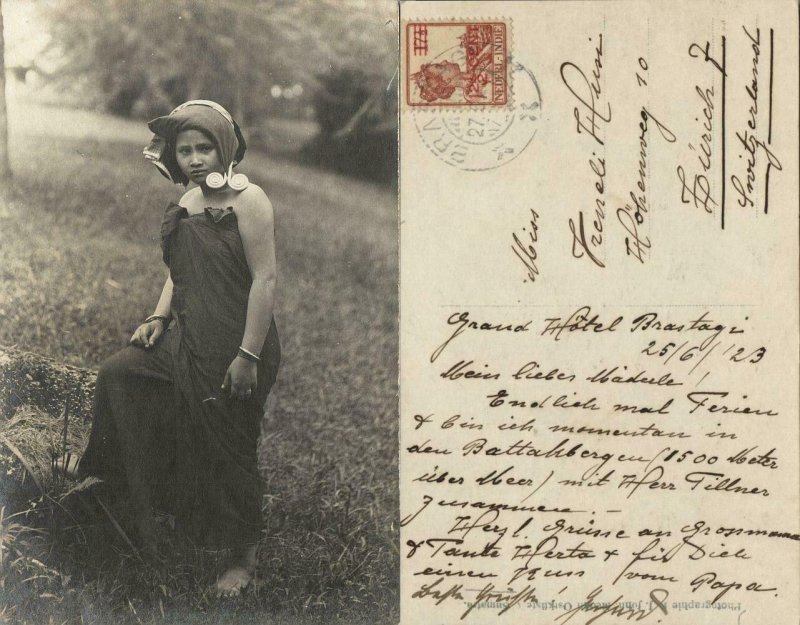 NEDERL-INDIË
Miss
Vreneli Huni
Höhenweg 10
Zürich 7
Switzerland
Grand Hôtel Brastagi
25/6/'23
Mein liebes Mäderle!
Endlich mal Ferien
& bin ich momentan in
den Battakbergen (1500 Meter
über Meer) mit Herr Tillner
zusammen. -
Herzl. Grüsse an Grossmama
& Tante Herta & für Dich
einen Kuss vom Papa.